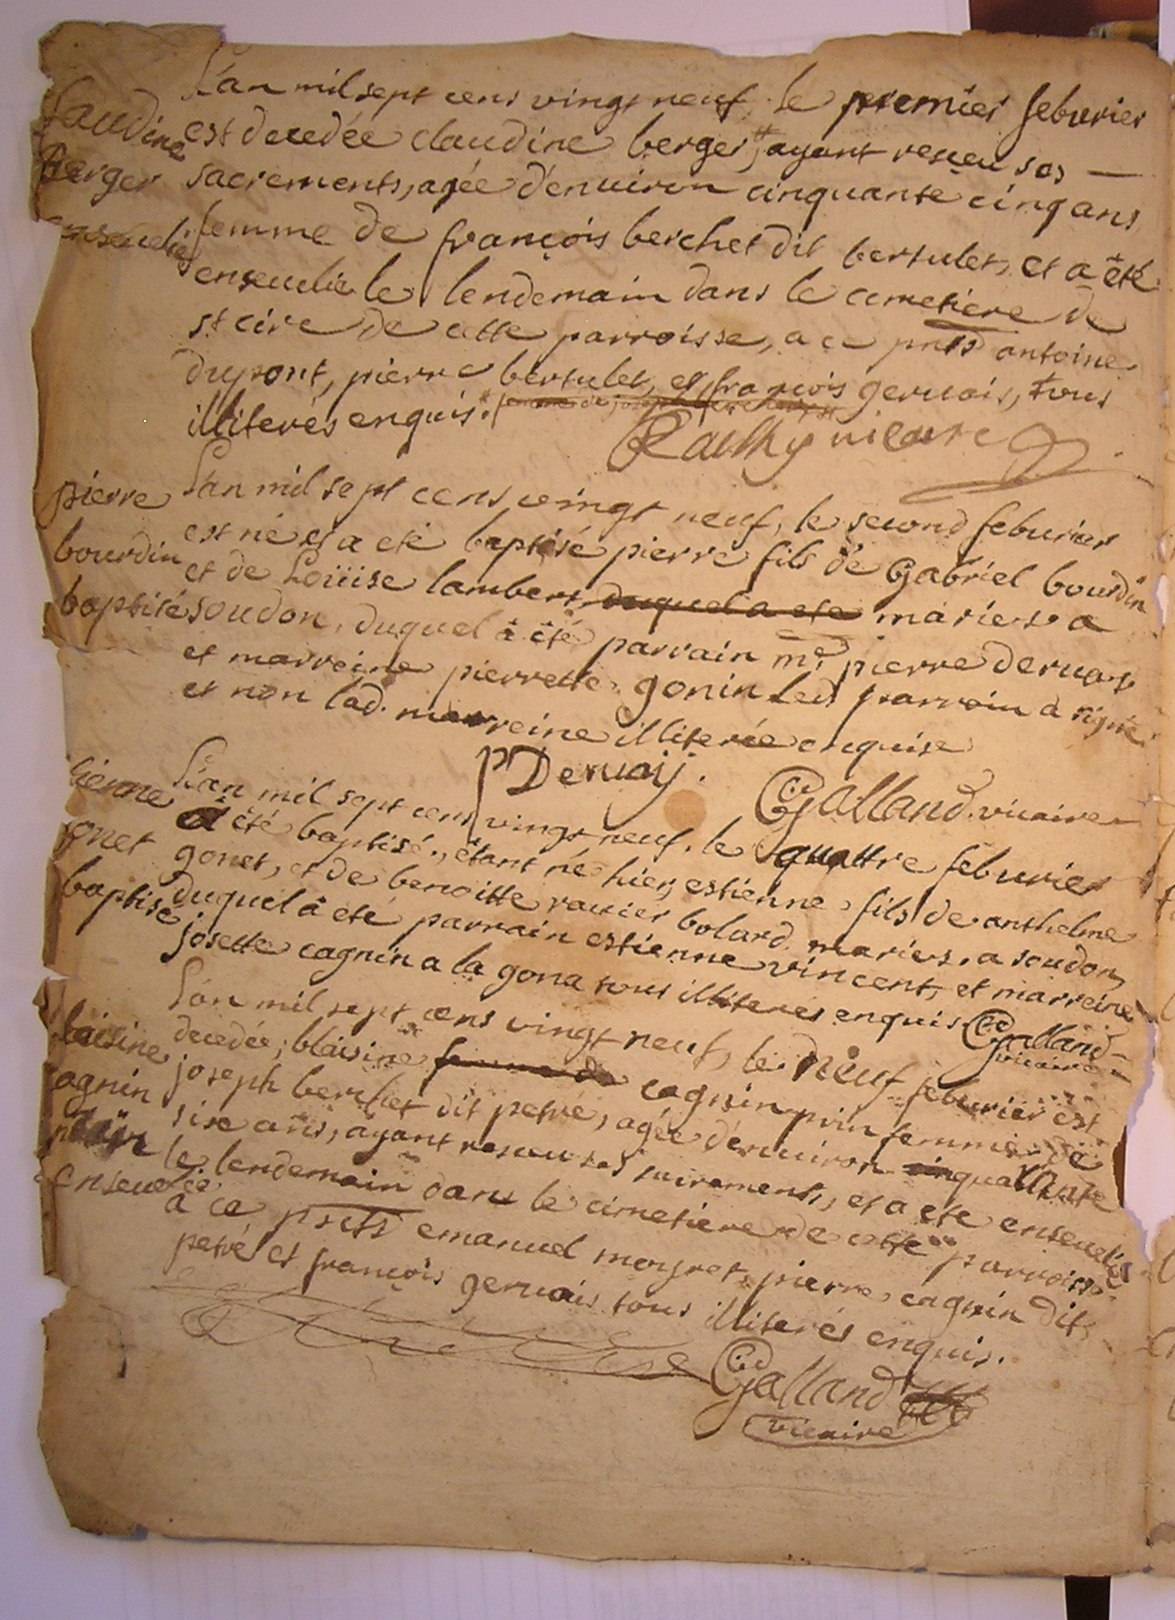 L'an mil sept cens vingt neuf, le premier feburier
Claudine
est decedée claudine berger, ayant receu ses
Berger
sacrements, agée d'enuiron cinquante cinq ans
enseuelie
femme de françois berchet dit bertulet, et a été
enseuelie le lendemain dans le cimetiere de
st cire de cette parroisse, a ce pnts antoine
dupont, pierre bertulet, et françois geruais, tous
illiterés enquis.
Railly vicaire
pierre
L'an mil sept cens vingt neuf, le second feburier
bourdin
est né et a eté baptisé pierre fils de Gabriel bourdin
et de Loüise lambert, duquel a eté mariers a
baptisé
soudon, duquel â été parrain me pierre deruay
et marreine pierrette gonin led parrain a signé
et non lad. marreine illiterée enquise
P Deruaij.
Galland vicaire
L'an mil sept cens vingt neuf, le quattre feburier
êtienne
â été baptisé, étant né hier, estienne, fils de anthelme
gonet
gonet, et de benoitte rauier bolard mariers, a soudon,
baptisé
duquel â eté parrain estienne vincent, et marreine
josette cagnin a la gona tous illiterés enquis
Galland
vicaire
L'an mil sept cens vingt neuf, le neuf feburier est
blaisine
decedée, blaisine femme de cagnin prin femme de
cagnin
joseph berchet dit petré, agée d'enuiron cinquattante
six ans, ayant receu ses sacrements, et a eté enseuelie
enseuelie
le lendemain dans le cimetiere de cette parroisse
à ce pnts emanuel moyret, pierre cagnin dit
petré et françois geruais tous illiterés enquis.
Galland
vicaire